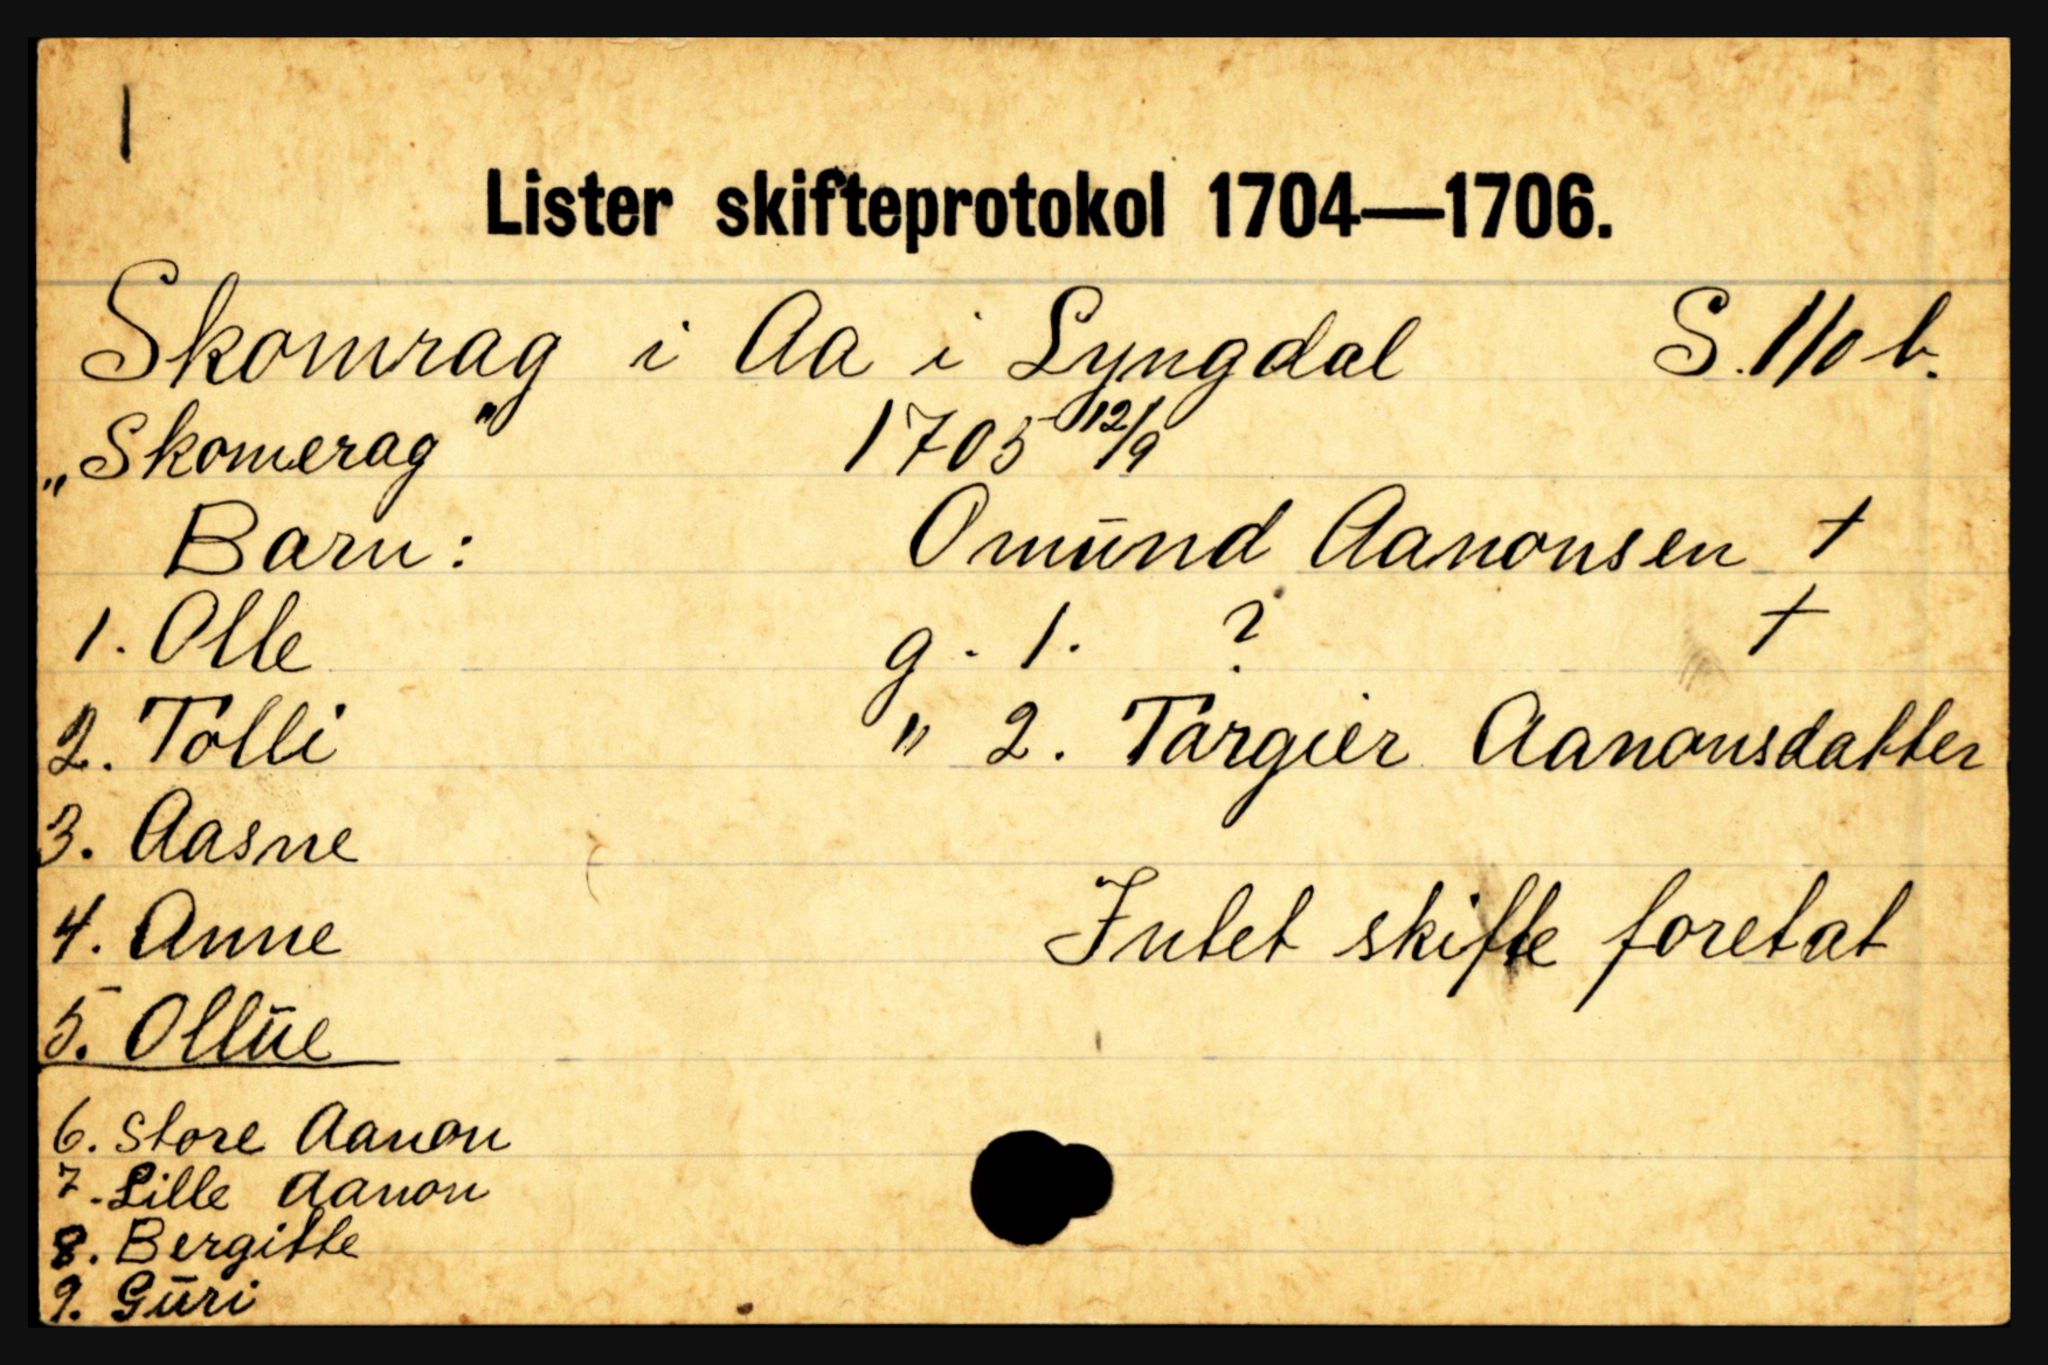 1
Lister skifteprotokol 1704—1706.
Skomrag i Aa i Lyngdal S. 110 b.
„Skomerag" 1705 12/9
Barn: Omūnd Aanonsen †
1. Olle g. 1. ? †
2. Tolli " 2. Targier Aanonsdatter
3. Aasne
4. Anne Intet skifte foretat
5. Ollūe
6. Store Aanon
7. Lille Aanon
8. Bergitte
9. Gūri